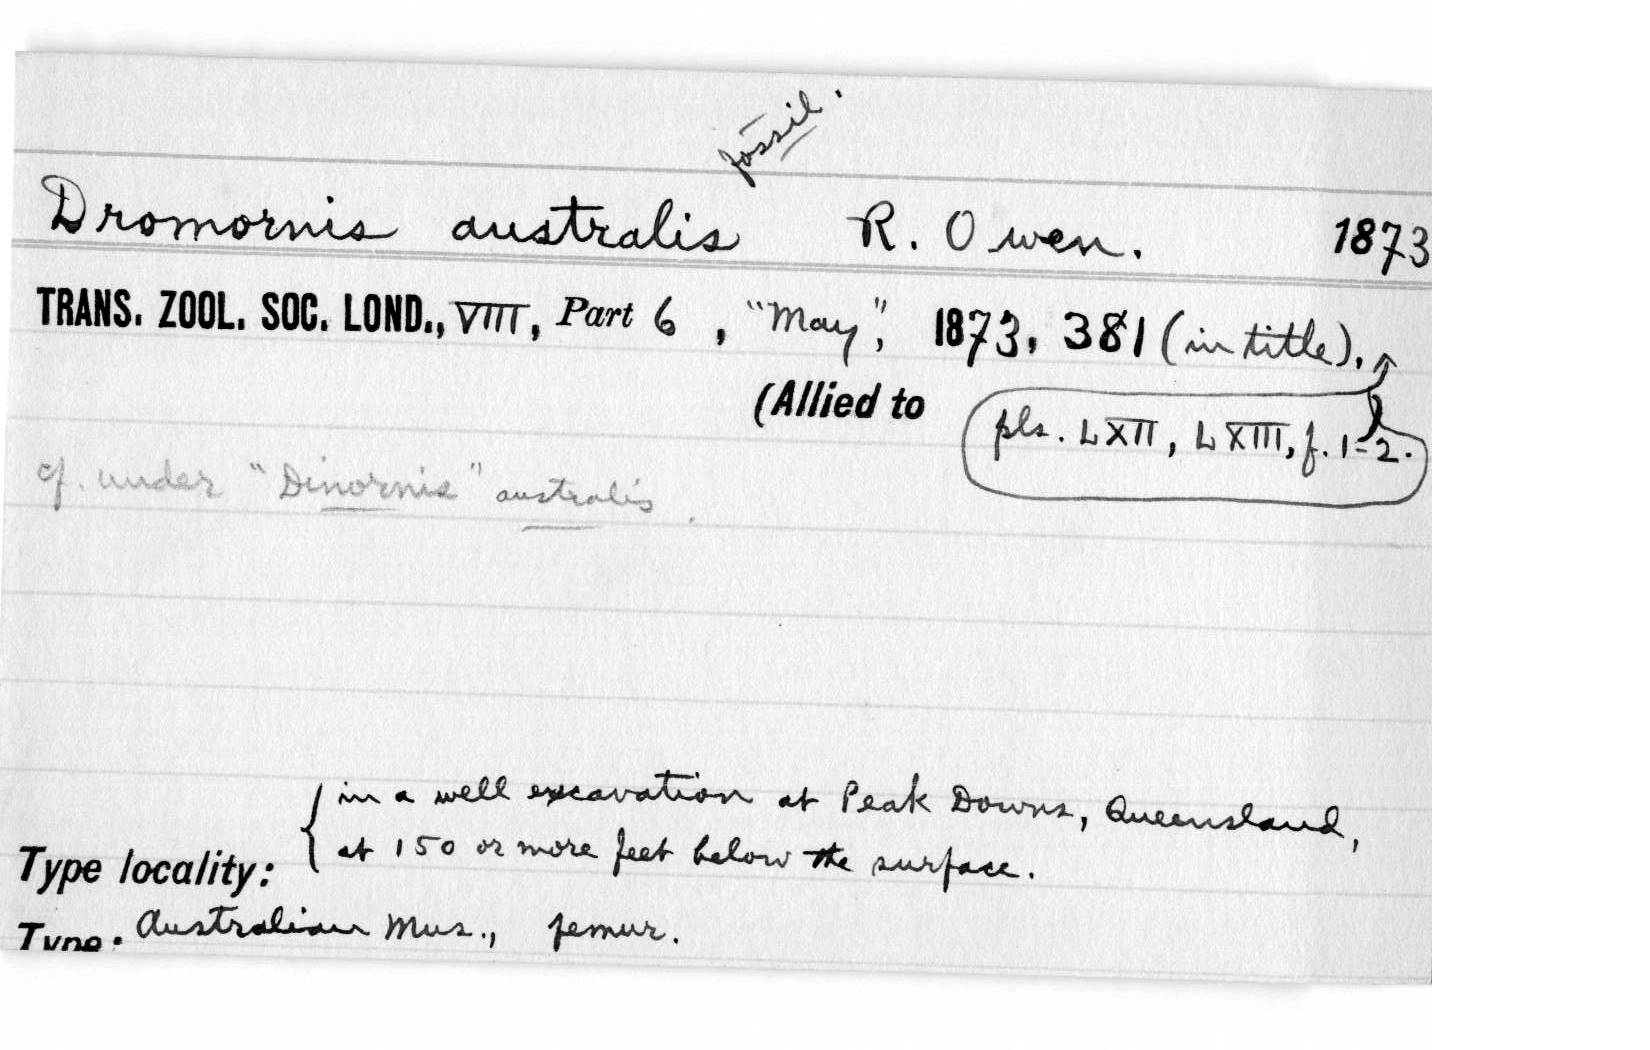 fossil.
Dromornis australis R. Owen. 1873
TRANS. ZOOL. SOC. LOND., VIII, Part 6, "May", 1873, 381 (in title).
(Allied to
pls. LXII, LXIII, f. 1-2.
cf. under "Dinornis" australis.
in a well excavation at Peak Downs, Queensland,
at 150 or more feet below the surface.
Type locality:
Type: Australian Mus., femur.